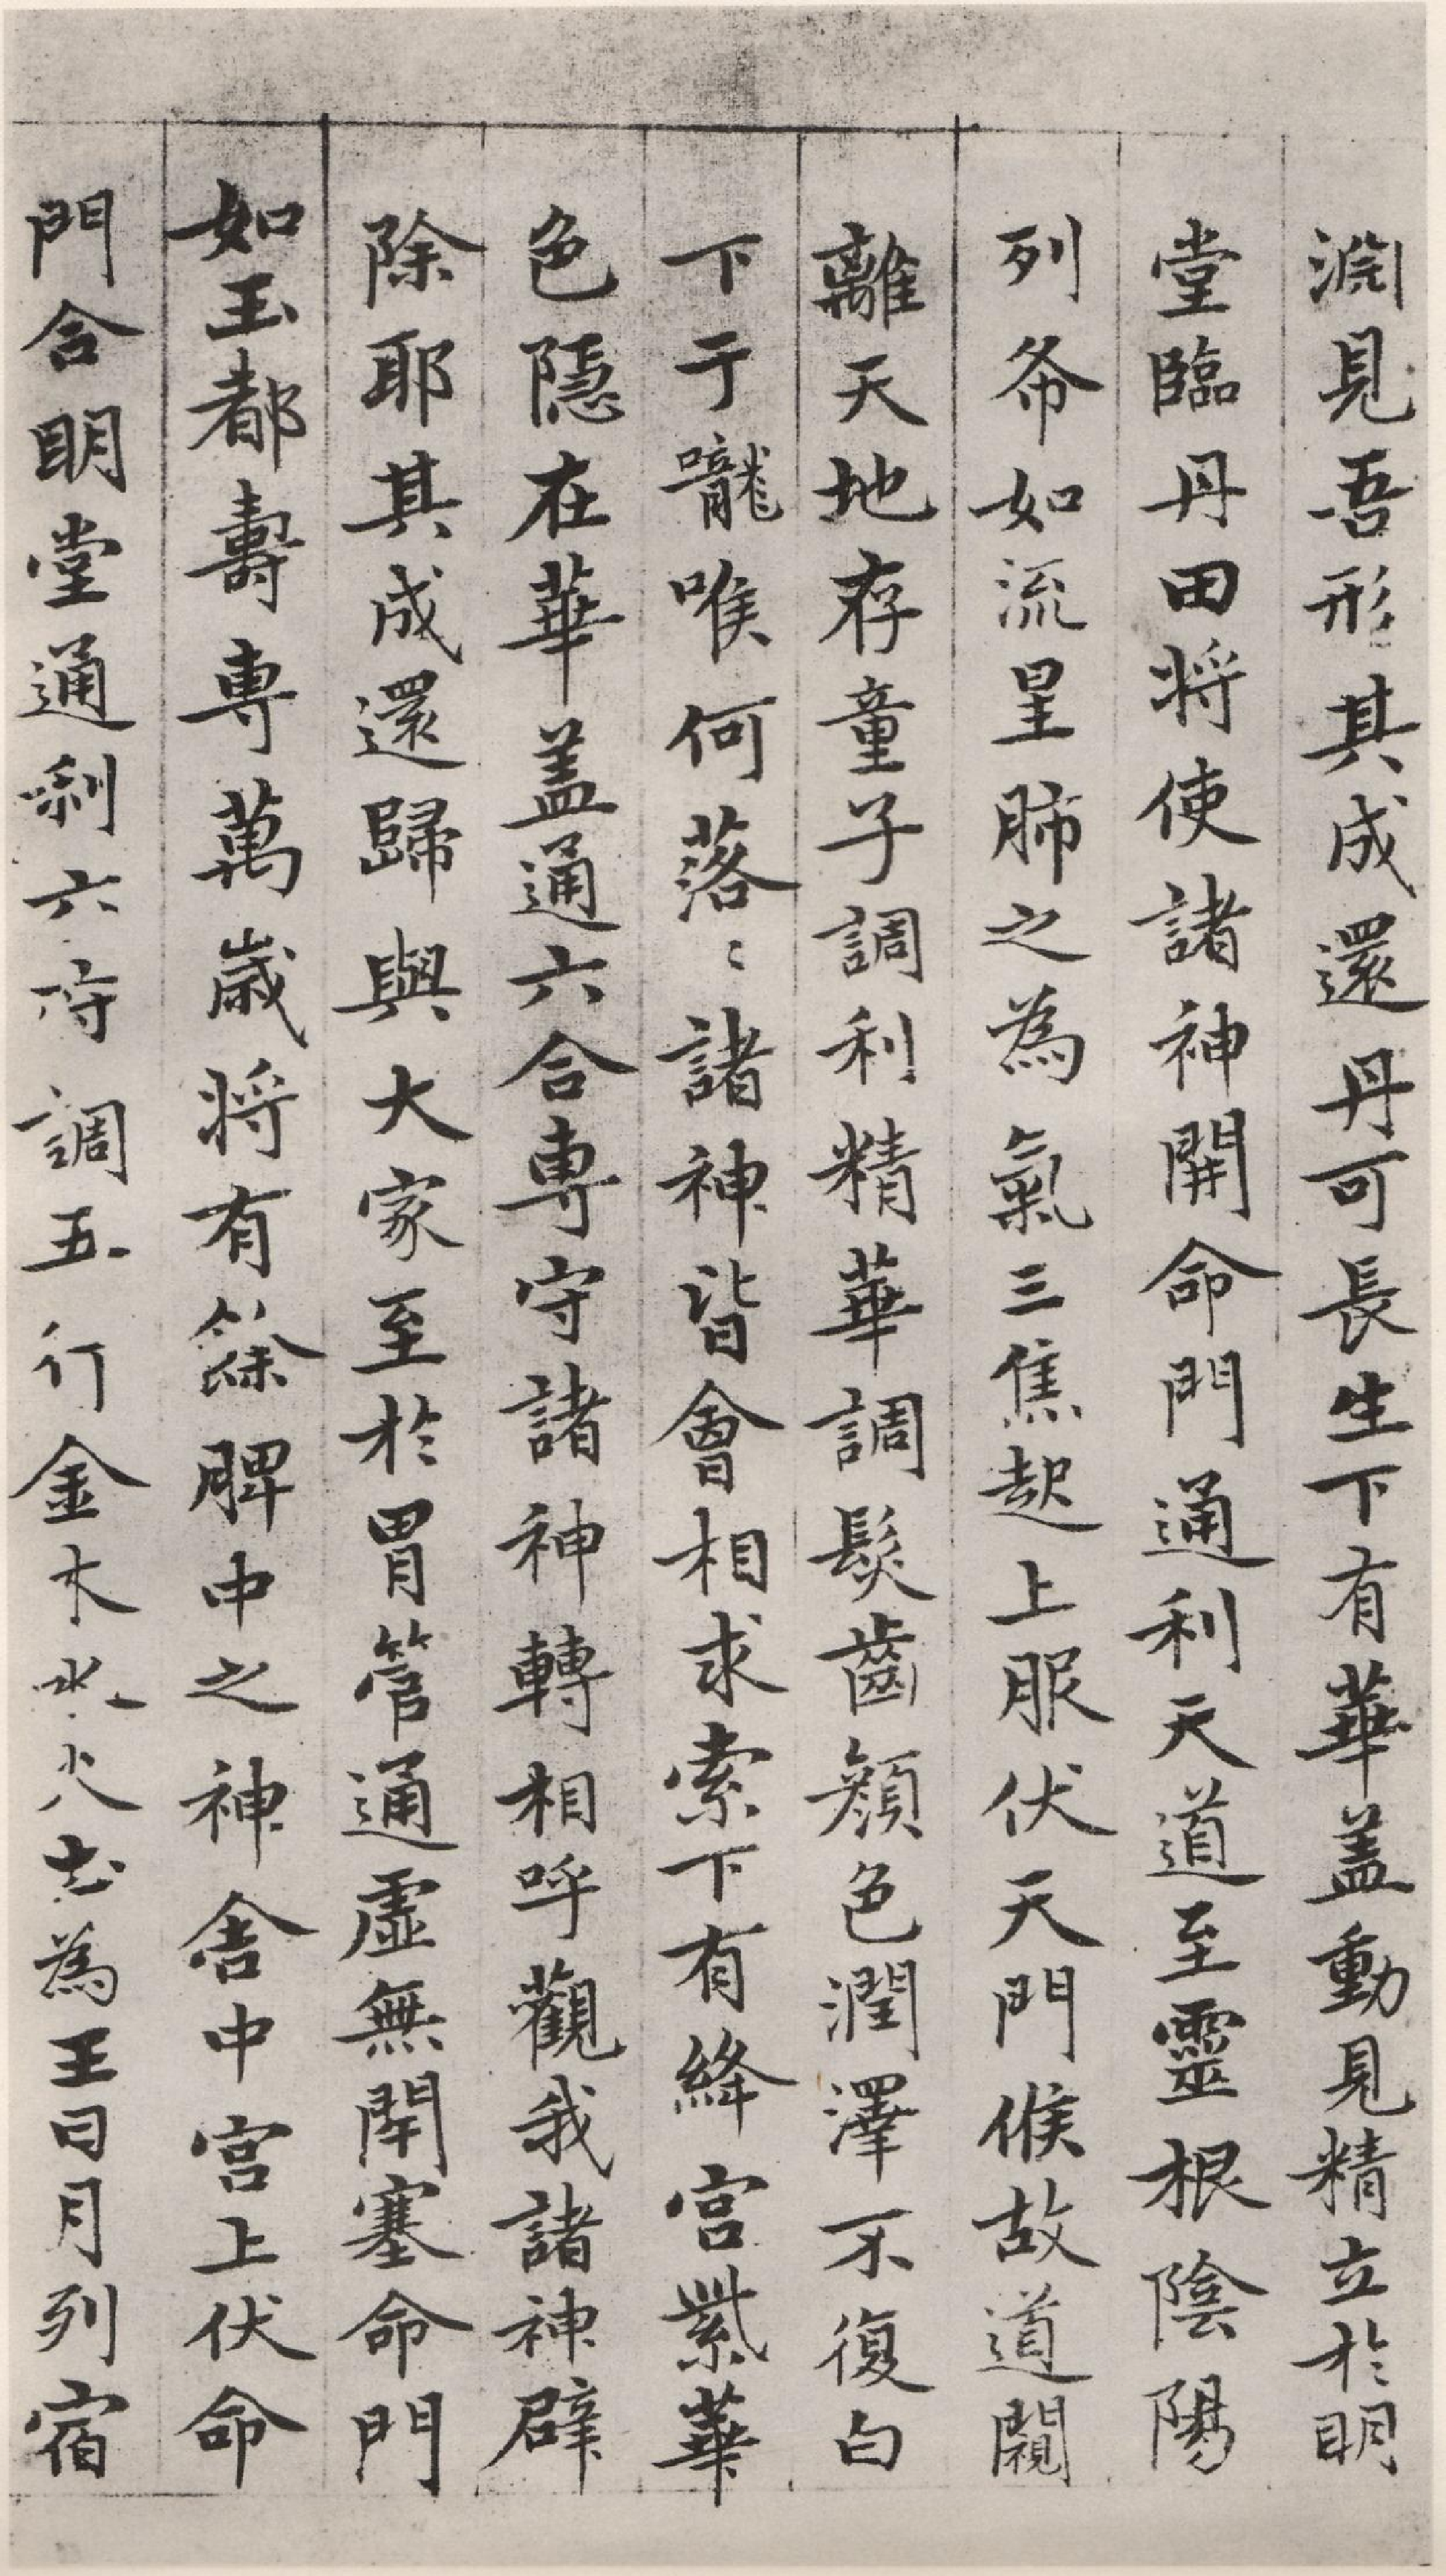 淵見吾形其成還丹可長生下有華盖動見精立於明
堂臨丹田将使諸神開命門通利天道至靈根陰陽
列布如流星肺之為氣三焦起上服伏天門候故道闚
離天地存童子調利精華調髮齒顔色潤澤不復白
下于嚨喉何落〻諸神皆會相求索下有絳宮紫華
色隱在華盖通六合専守諸神轉相呼觀我諸神辟
除耶其成還歸與大家至於胃管通虛無閉塞命門
如玉都壽専萬歲将有餘脾中之神舍中宮上伏命
門合明堂通利六府調五行金木水火土為王日月列宿